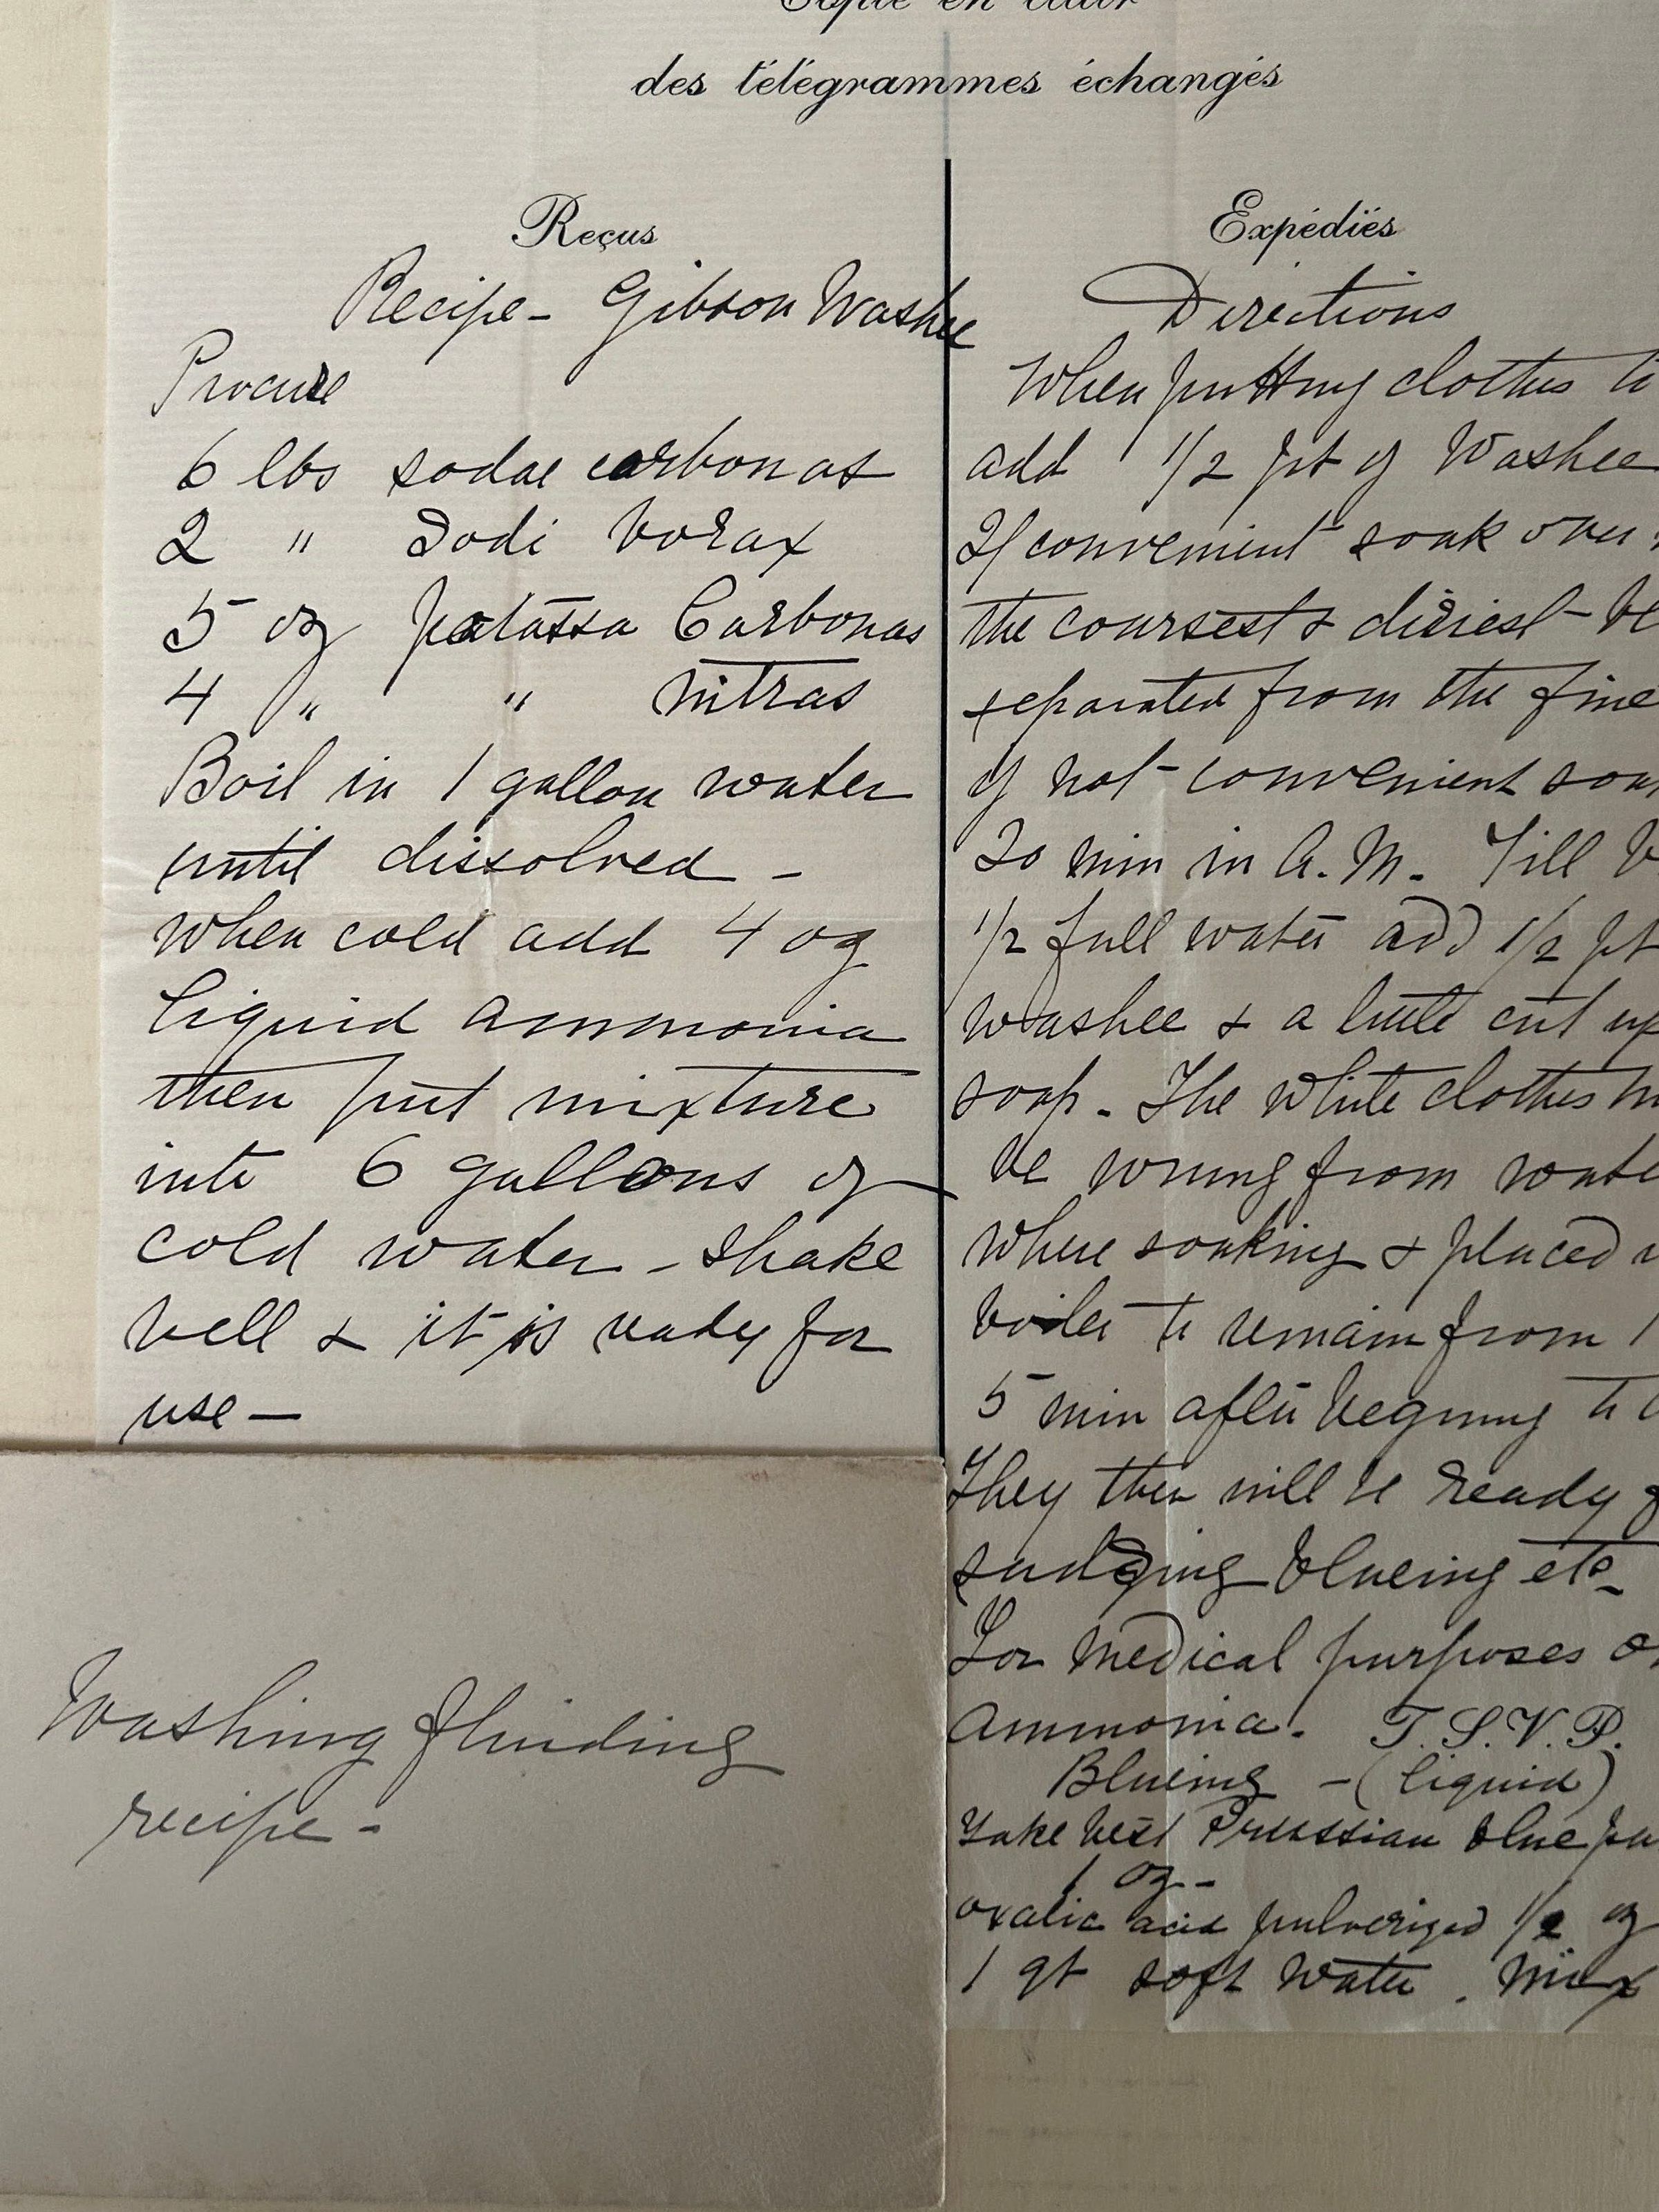 Copie en clair
des télégrammes échangés
Reçus
Recipe - Gibson Washee
Procure
6 lbs sodae carbonas
2 " Sodi borax
5 oz potassa Carbonas
4 " " nitras
Boil in 1 gallon water
until dissolved -
when cold add 4 oz
liquid ammonia
then put mixture
into 6 gallons of
cold water - shake
well & it is ready for
use -
Expédiés
Directions
When putting clothes to
add 1/2 pt of Washee
If convenient soak over
the coursest & diriest - be
separated from the fine
if not - convenient soak
20 min in A.M. Fill b
1/2 full water add 1/2 pt
washee & a little cut up
soap - The white clothes
be wrung from water
where soaking & placed
boiler to remain from 1
5 min after begining to
They then will be ready
sudsing blueing etc -
For medical purposes
Ammonia. T.S.V.P.
Blueing - (liquid)
Take best Prussian blue
1 oz -
oxalic acid pulverized 1/2 oz
1 qt soft water. Mix
Washing fluiding
recipe -